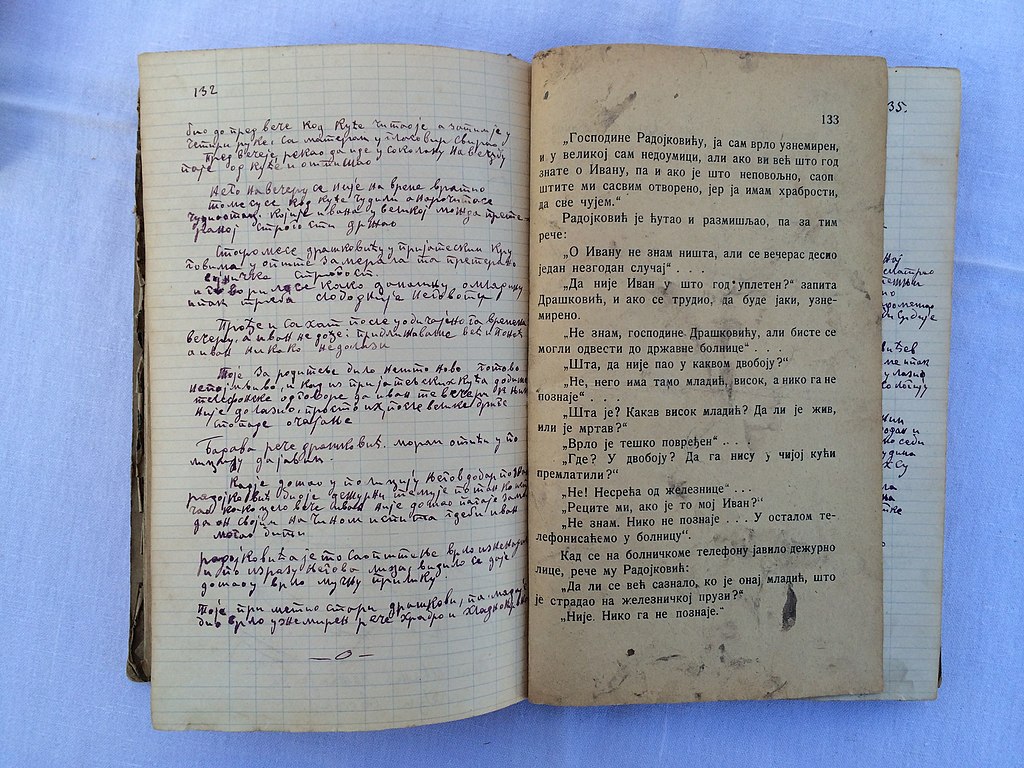 132
био до пред вече код куће читао је а затим је у
четири руке са матером у клавир свирао
Пред вече је рекао да иде у соколану на вежбу
па је од куће и отишао
него на вечеру се није на време вратио
томе су се код куће чудили а нарочито се
кој је ивана у великој можда прете
раној строгости држао
Старом се драшковићу у пријатељским кру
говима у опште замерала та претерано
војничка строгост.
и говорило се како данашњу омладину
ипак треба слободније неговати
Прође и сахат после уобичајенога времена
вечеру, а иван не дође; приближавало већ и поноћ
а иван никако не долази
То је за родитеље било нешто ново готово
непојмљиво, и кад из пријатељских кућа добише
телефонске одговоре да иван те вечери к њима
није долазио, просто их после велике бриге
попаде очајање
рече драшковић. морам отићи у по
лицију да јавим.
Кад је дошао у полицију његов добар
радојковић био је дежурни
цело вече иван није дошао
да он својим начином испита где би иван
могао бити
радојковића је то саопштење врло изненадило
и по изразу његова лица, видило се да је
дошао у врло мучну прилику
То је приметио стари драшкови, па мада је
био врло узнемирен рече храбро и хладнокрвно
—о—
133
„Господине Радојковићу, ја сам врло узнемирен,
и у великој сам недоумици, али ако ви већ што год
знате о Ивану, па и ако је што неповољно, саоп
штите ми сасвим отворено, јер ја имам храбрости,
да све чујем.“
Радојковић је ћутао и размишљао, па за тим
рече:
„О Ивану не знам ништа, али се вечерас десио
један незгодан случај“ . . . .
„Да није Иван у што год уплетен?“ запита
Драшковић, и ако се трудио, да буде јаки, узне-
мирено.
„Не знам, господине Драшковићу, али бисте се
могли одвести до државне болнице“ . . .
„Шта, да није пао у каквом двобоју?“
„Не, него има тамо младић, висок, а нико га не
познаје“ . . .
„Шта је? Какав висок младић? Да ли је жив,
или је мртав?“
„Врло је тешко повређен“ . . . .
„Где? У двобоју? Да га нису у чијој кући
премлатили?“
„Не! Несрећа од железнице“ . . .
„Реците ми, ако је то мој Иван?“
„Не знам. Нико не познаје . . . У осталом те-
лефонисаћемо у болницу“.
Кад се на болничкоме телефону јавило дежурно
лице, рече му Радојковић:
„Да ли се већ сазнало, ко је онај младић, што
је страдао на железничкој прузи?“
„Није. Нико га не познаје.“
35.